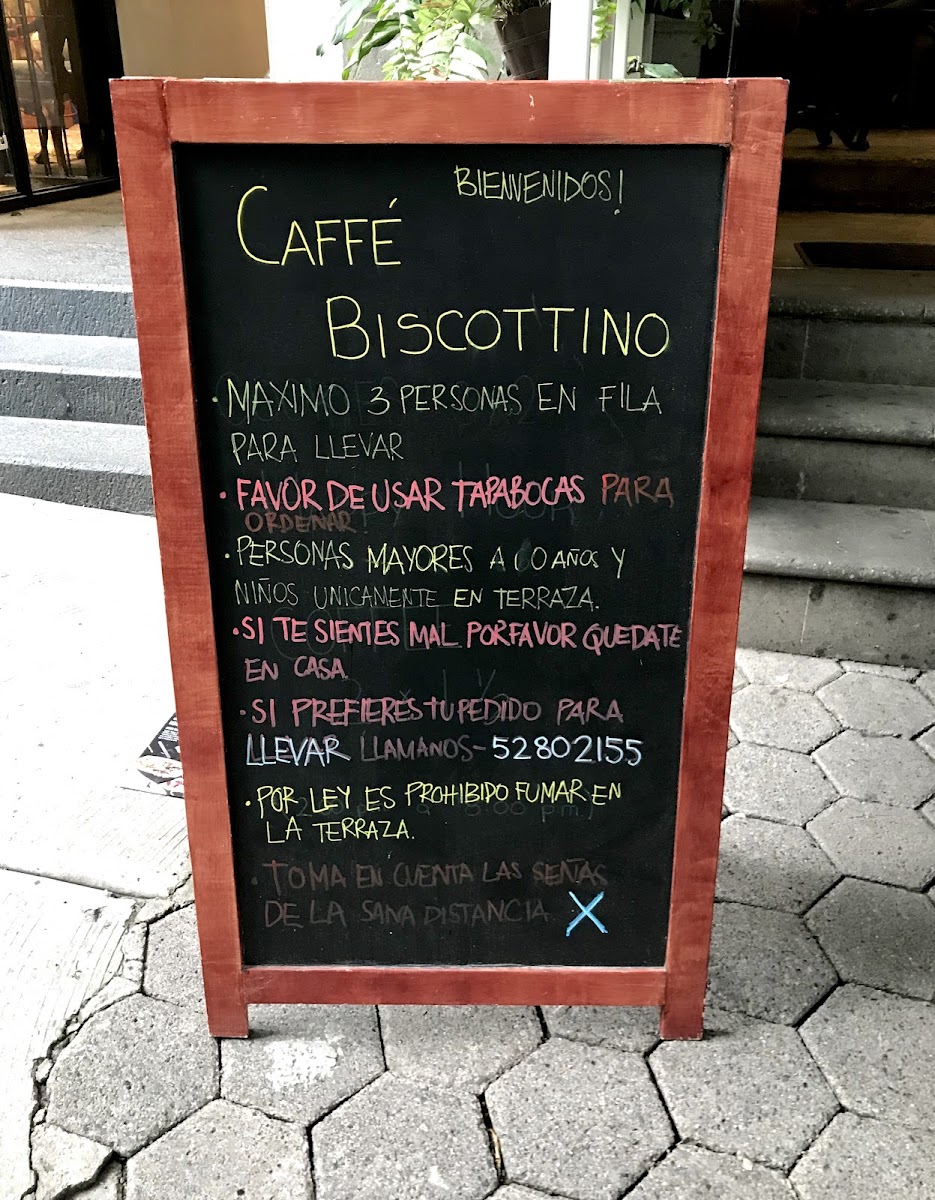 BIENVENIDOS!
CAFFÉ
BISCOTTINO
• MAXIMO 3 PERSONAS EN FILA
PARA LLEVAR
• FAVOR DE USAR TAPABOCAS PARA
ORDENAR
• PERSONAS MAYORES A 60 AÑOS Y
NIÑOS UNICAMENTE EN TERRAZA.
• SI TE SIENTES MAL POR FAVOR QUEDATE
EN CASA.
• SI PREFIERES TU PEDIDO PARA
LLEVAR LLAMANOS - 52802155
• POR LEY ES PROHIBIDO FUMAR EN
LA TERRAZA.
• TOMA EN CUENTA LAS SEÑAS
DE LA SANA DISTANCIA X